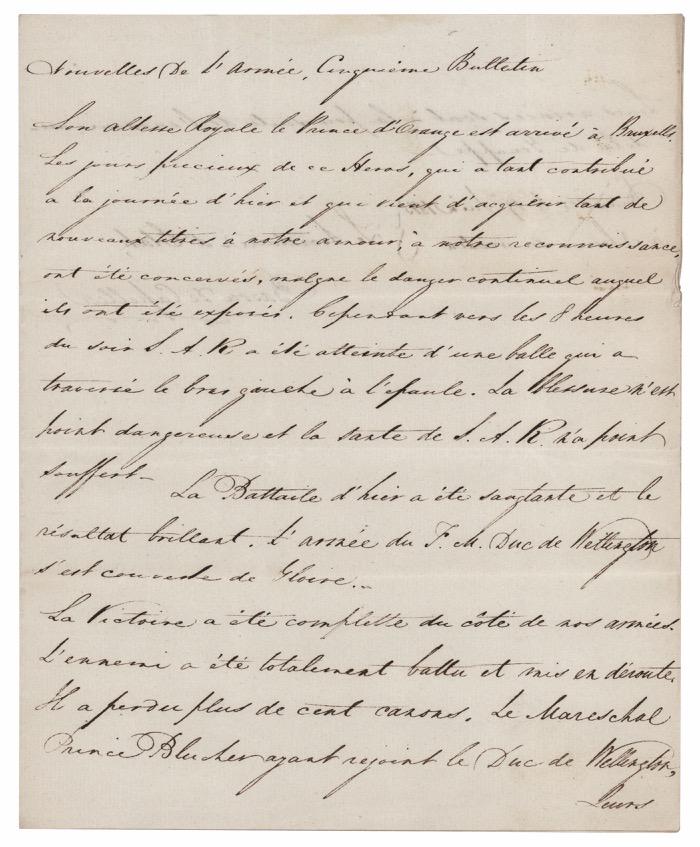 Nouvelles De l'armée, Cinquième Bulletin
Son altesse Royale le Prince d'Orange est arrivé à Bruxelle.
Les jours precieux de ce Heros, qui a tant contribué
a la journée d'hier et qui vient d'acquérir tant de
nouveaux titres à notre amour, à notre reconnoissance,
ont été concervés, malgre le danger continuel auquel
ils ont été exposés. Cependant vers les 8 heures
du soir S. A. R a été atteinte d'une balle qui a
traversé le bras gauche à l'epaule. La Blessure n'est
point dangereuse et la sante de S. A. R. n'a point
souffert_
La Battaile d'hier a été sanglante et le
résultat brillant. L'armée du F. M. Duc de Wellington
s'est couverte de Gloire...
La Victoire a été complette du côté de nos armées.
L'ennemi a été totalement battu et mis en déroute.
Il a perdu plus de cent canons. Le Mareschal
Prince Blucher ayant rejoint le Duc de Wellington,
Leurs